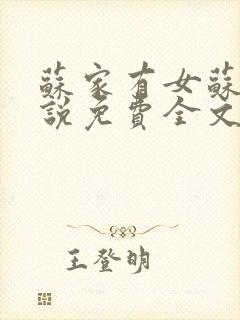 蘇家有女蘇
說免費全文
王登明